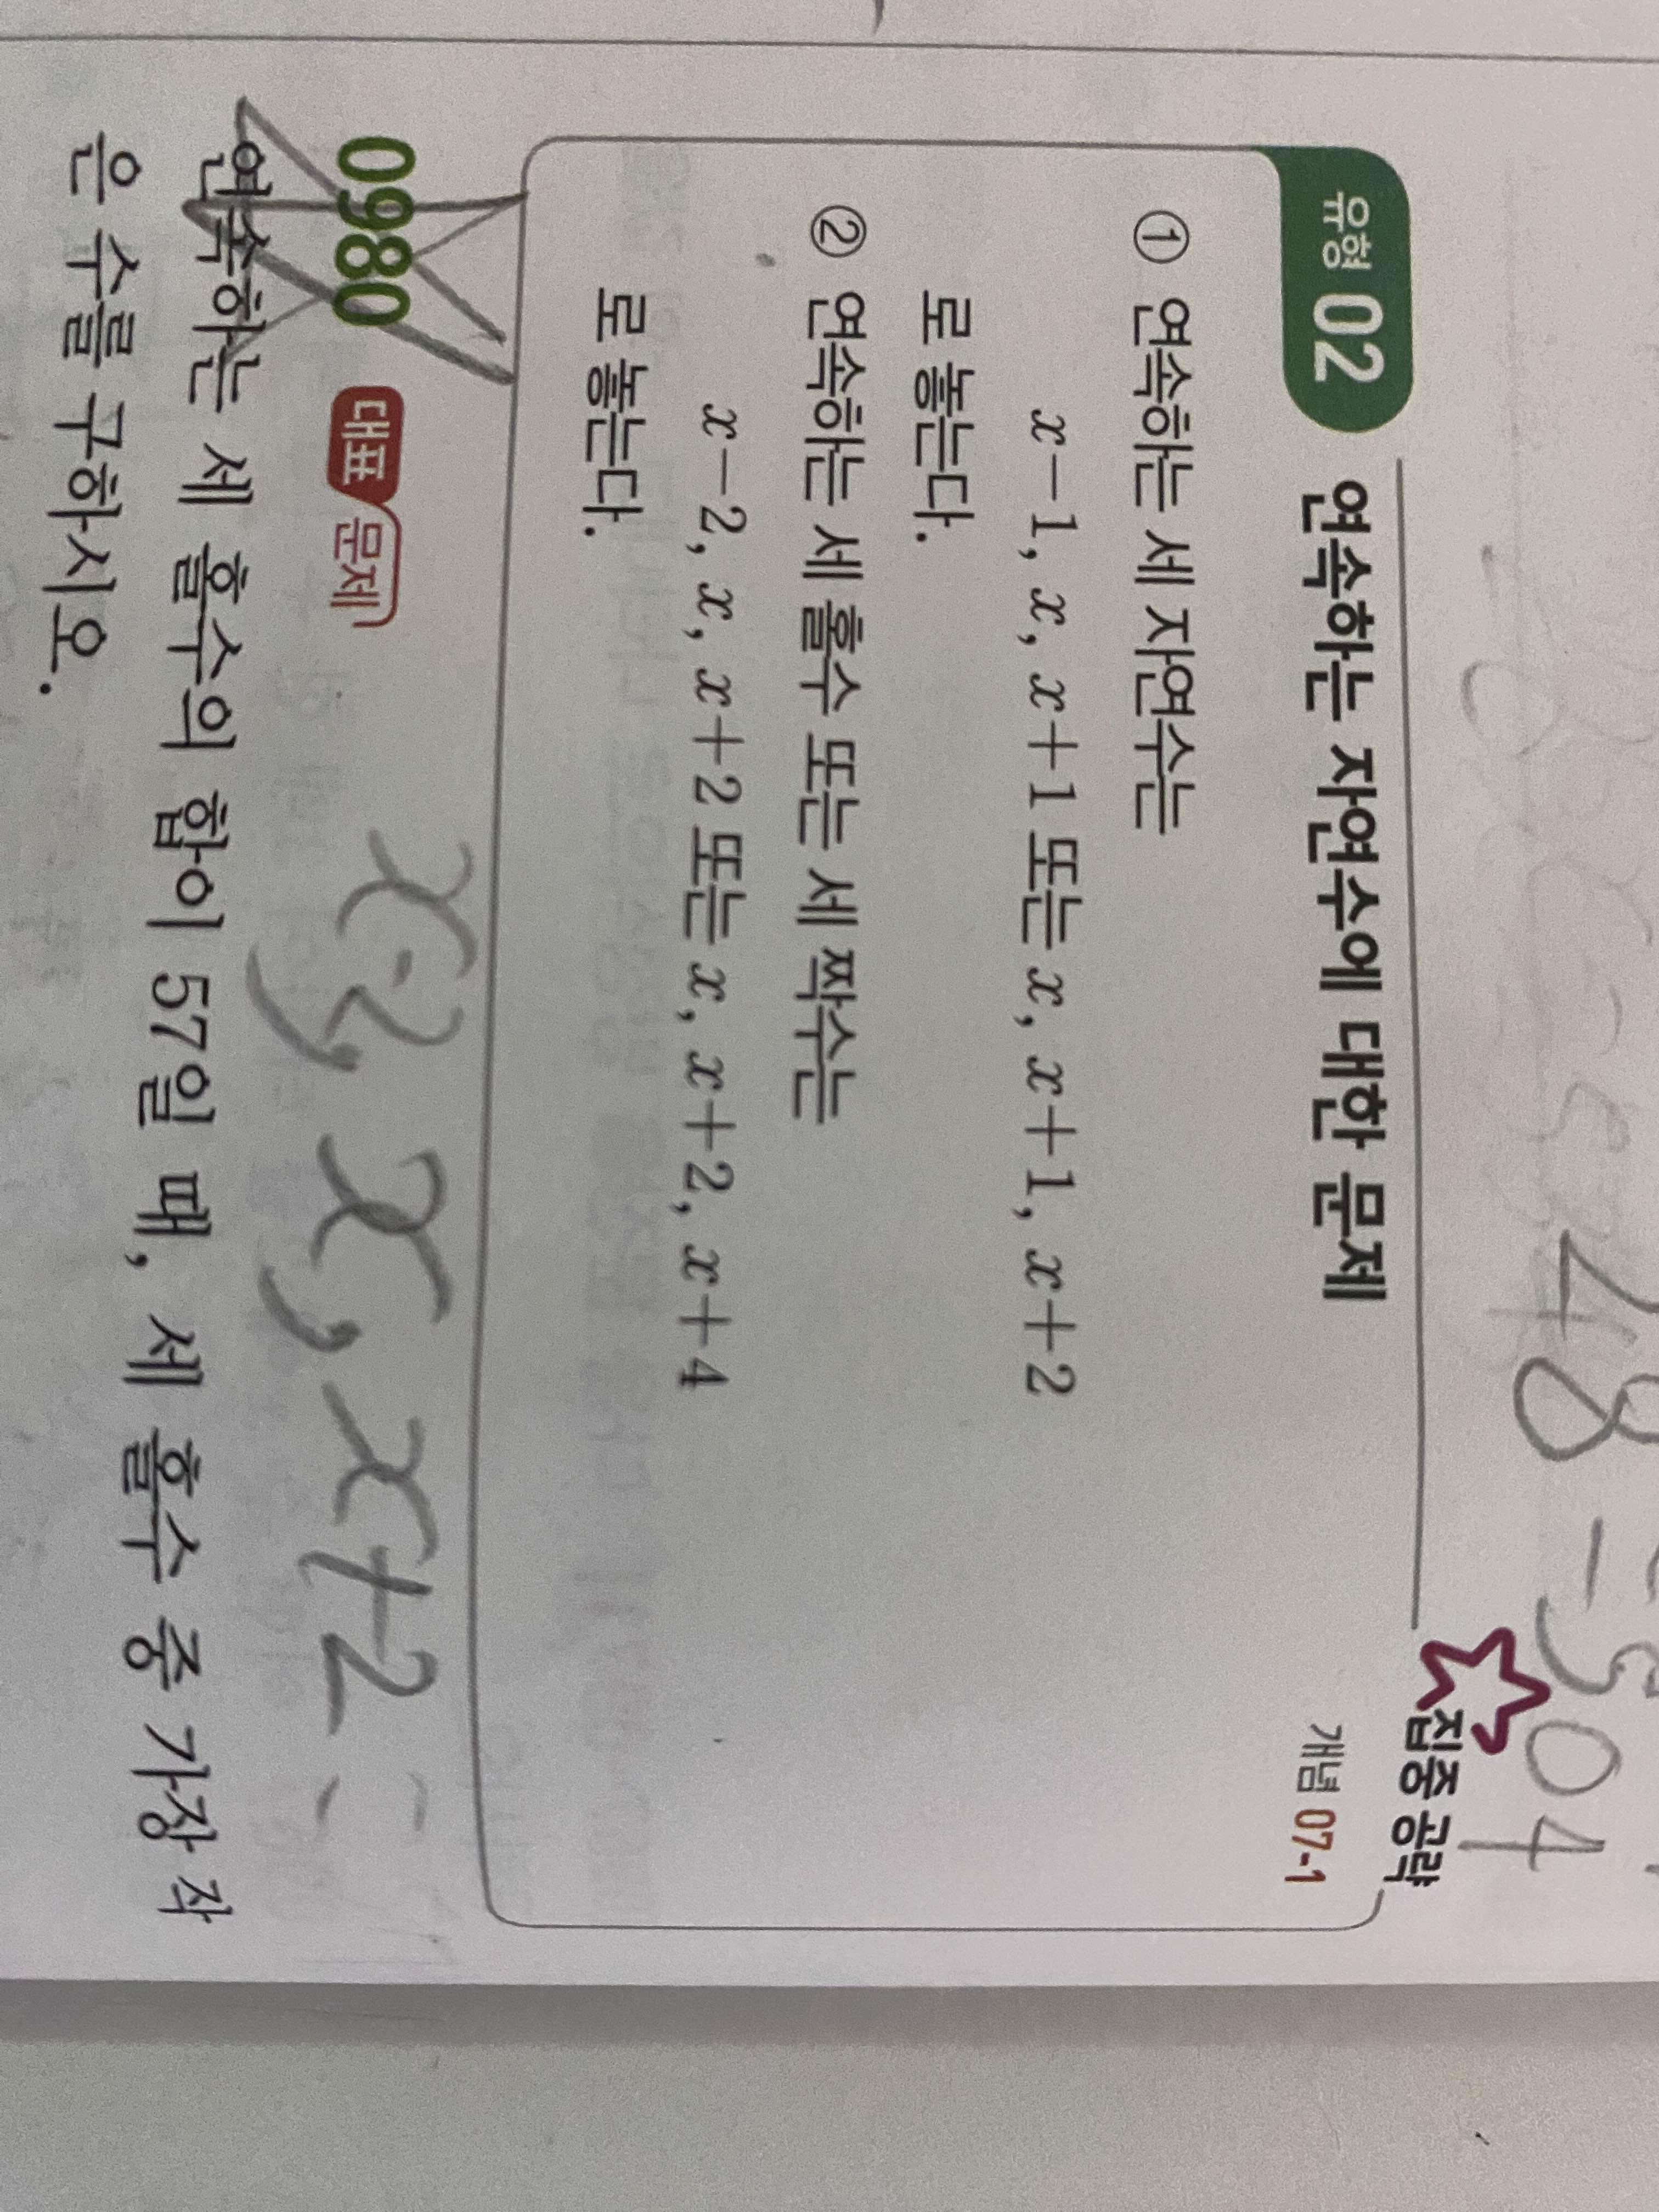 48-504
집중 공략
유형 02 연속하는 자연수에 대한 문제
개념 07-1
① 연속하는 세 자연수는
x-1, x, x+1 또는 x, x+1, x+2
로 놓는다.
② 연속하는 세 홀수 또는 세 짝수는
x-2, x, x+2 또는 x, x+2, x+4
로 놓는다.
x-2, x, x+2
0980 대표 문제
연속하는 세 홀수의 합이 57일 때, 세 홀수 중 가장 작
은 수를 구하시오.